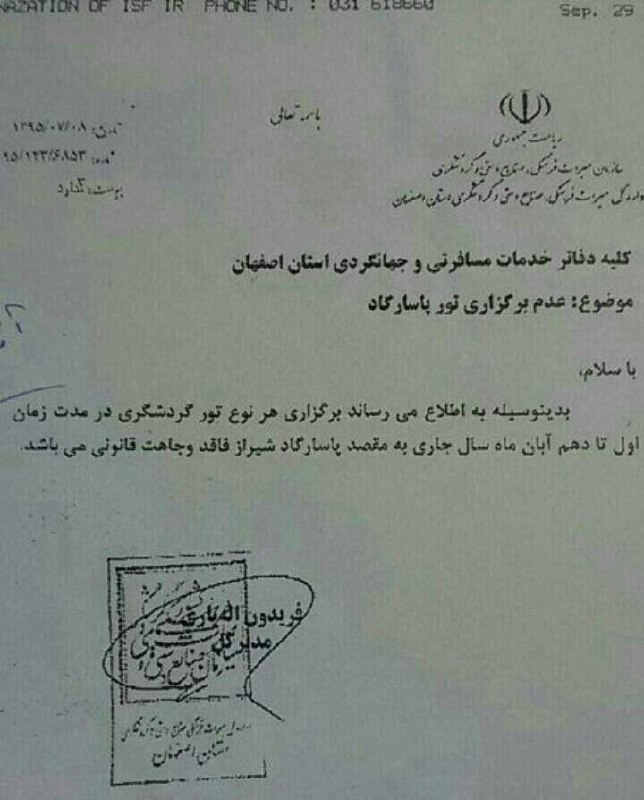 NAZATION OF ISF IR PHONE NO. : 031 618660
Sep. 29
باسمه تعالی
ریاست جمهوری
سازمان میراث فرهنگی، صنایع دستی و گردشگری
اداره کل میراث فرهنگی، صنایع دستی و گردشگری استان اصفهان
تاریخ: ۱۳۹۵/۰۷/۰۸
۹۵/۱۲۳/۶۸۵۳
پیوست: ندارد
کلیه دفاتر خدمات مسافرتی و جهانگردی استان اصفهان
موضوع: عدم برگزاری تور پاسارگاد
با سلام،
بدینوسیله به اطلاع می رساند برگزاری هر نوع تور گردشگری در مدت زمان
اول تا دهم آبان ماه سال جاری به مقصد پاسارگاد شیراز فاقد وجاهت قانونی می باشد.
فریدون اللهیاری
مدیر کل
استان اصفهان